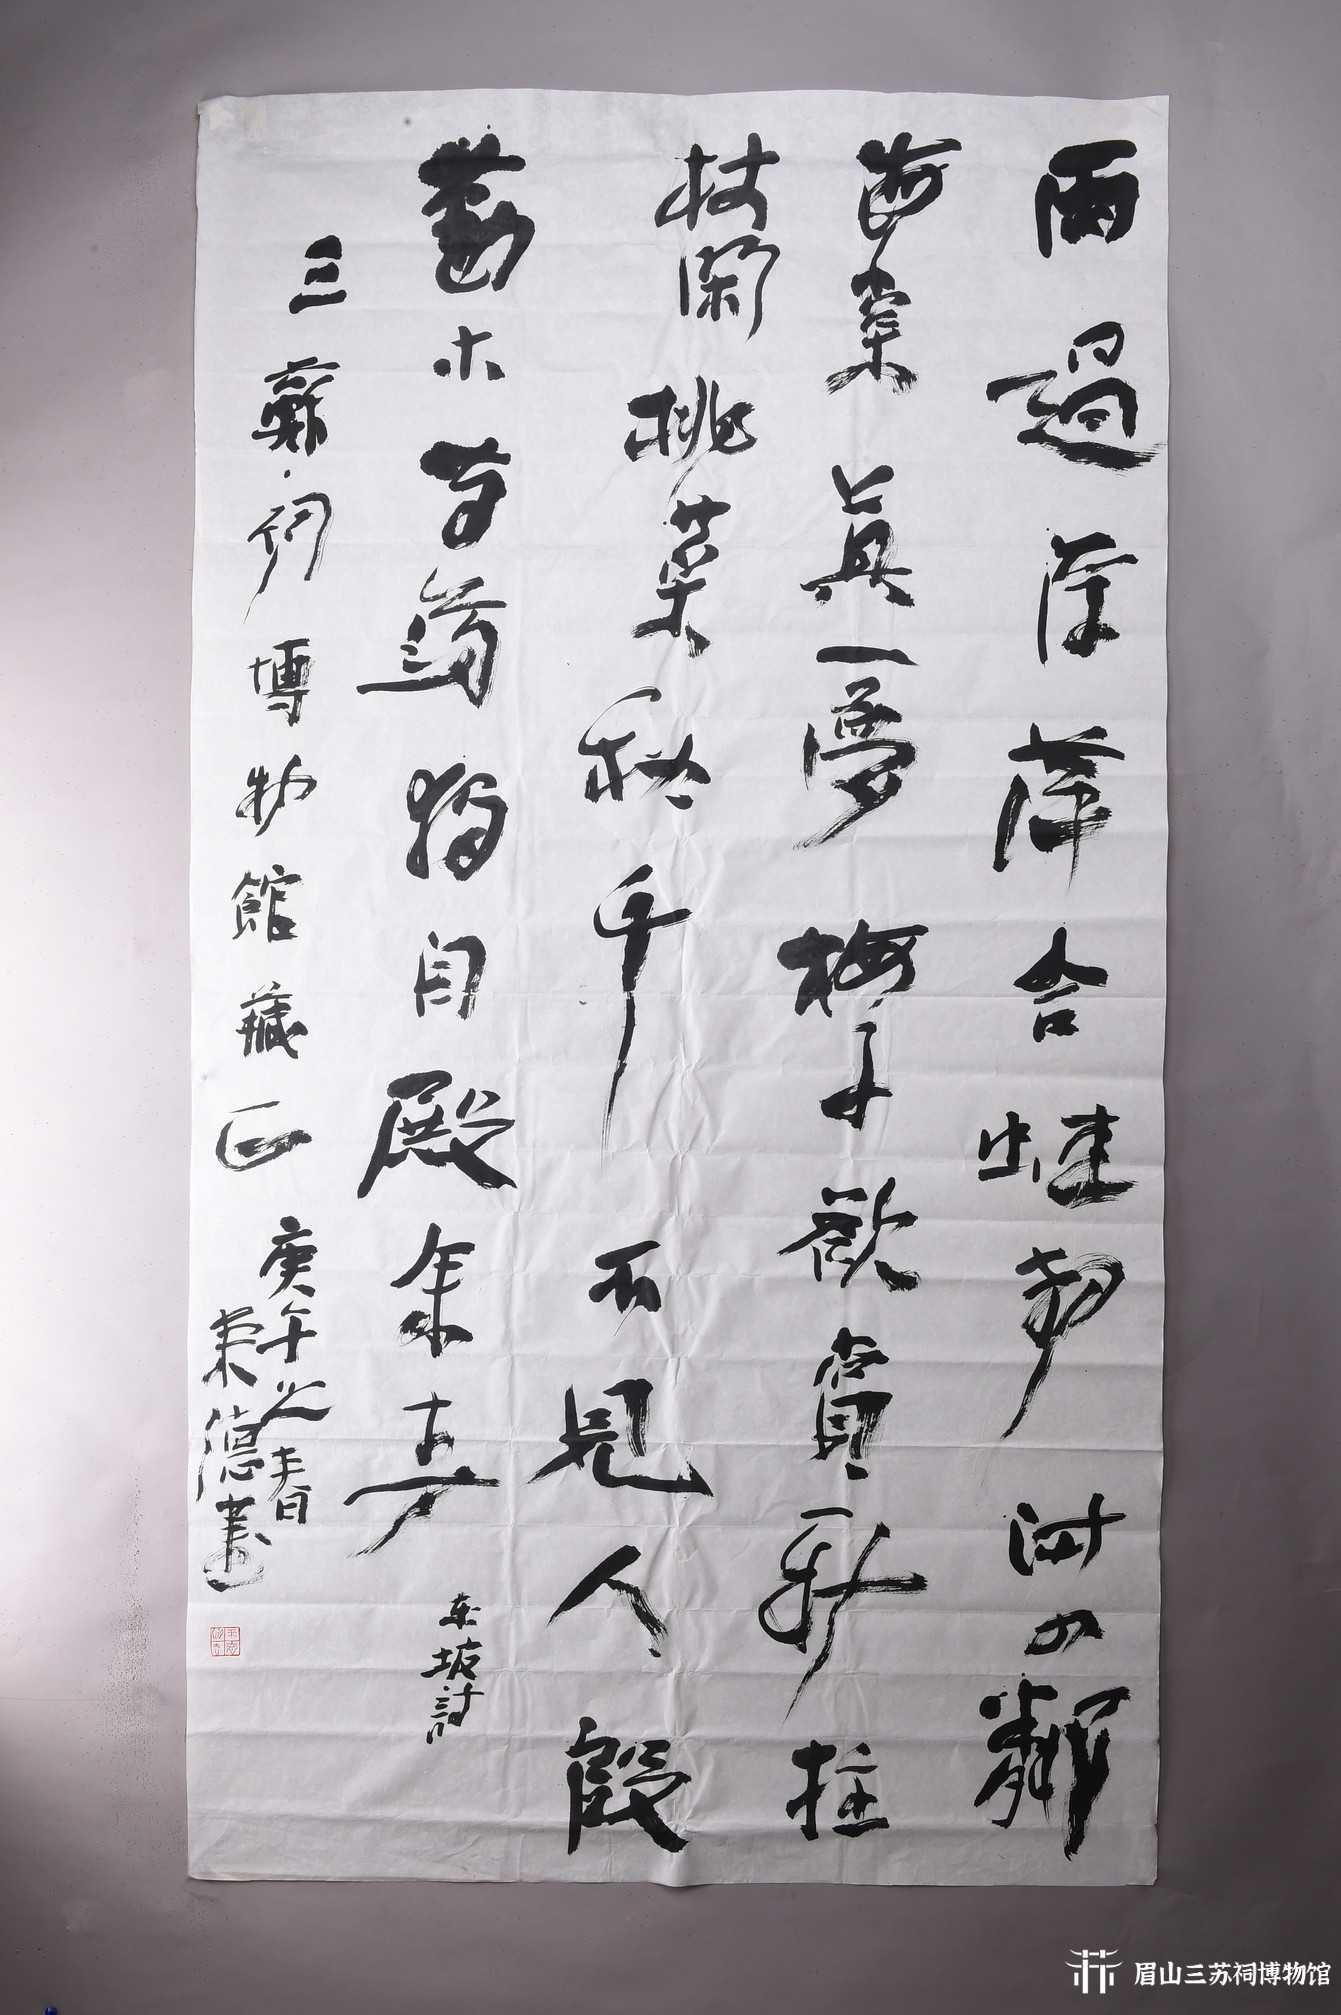 雨過浮萍合蛙聲滿四鄰
海棠真一夢梅子欲嘗新拄
杖閑挑菜秋千不見人殷
勤木芍藥獨自殿餘春
東坡詩
三蘇祠博物館藏正
庚午之春月
德書
眉山三苏祠博物馆